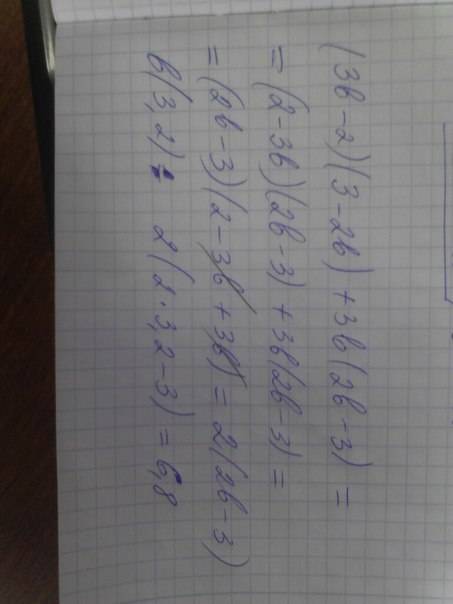 (3b-2)(3-2b)+3b(2b-3)=
=(2-3b)(2b-3)+3b(2b-3)=
=(2b-3)(2-3b+3b)=2(2b-3)
b(3,2): 2(2·3,2-3)=6,8